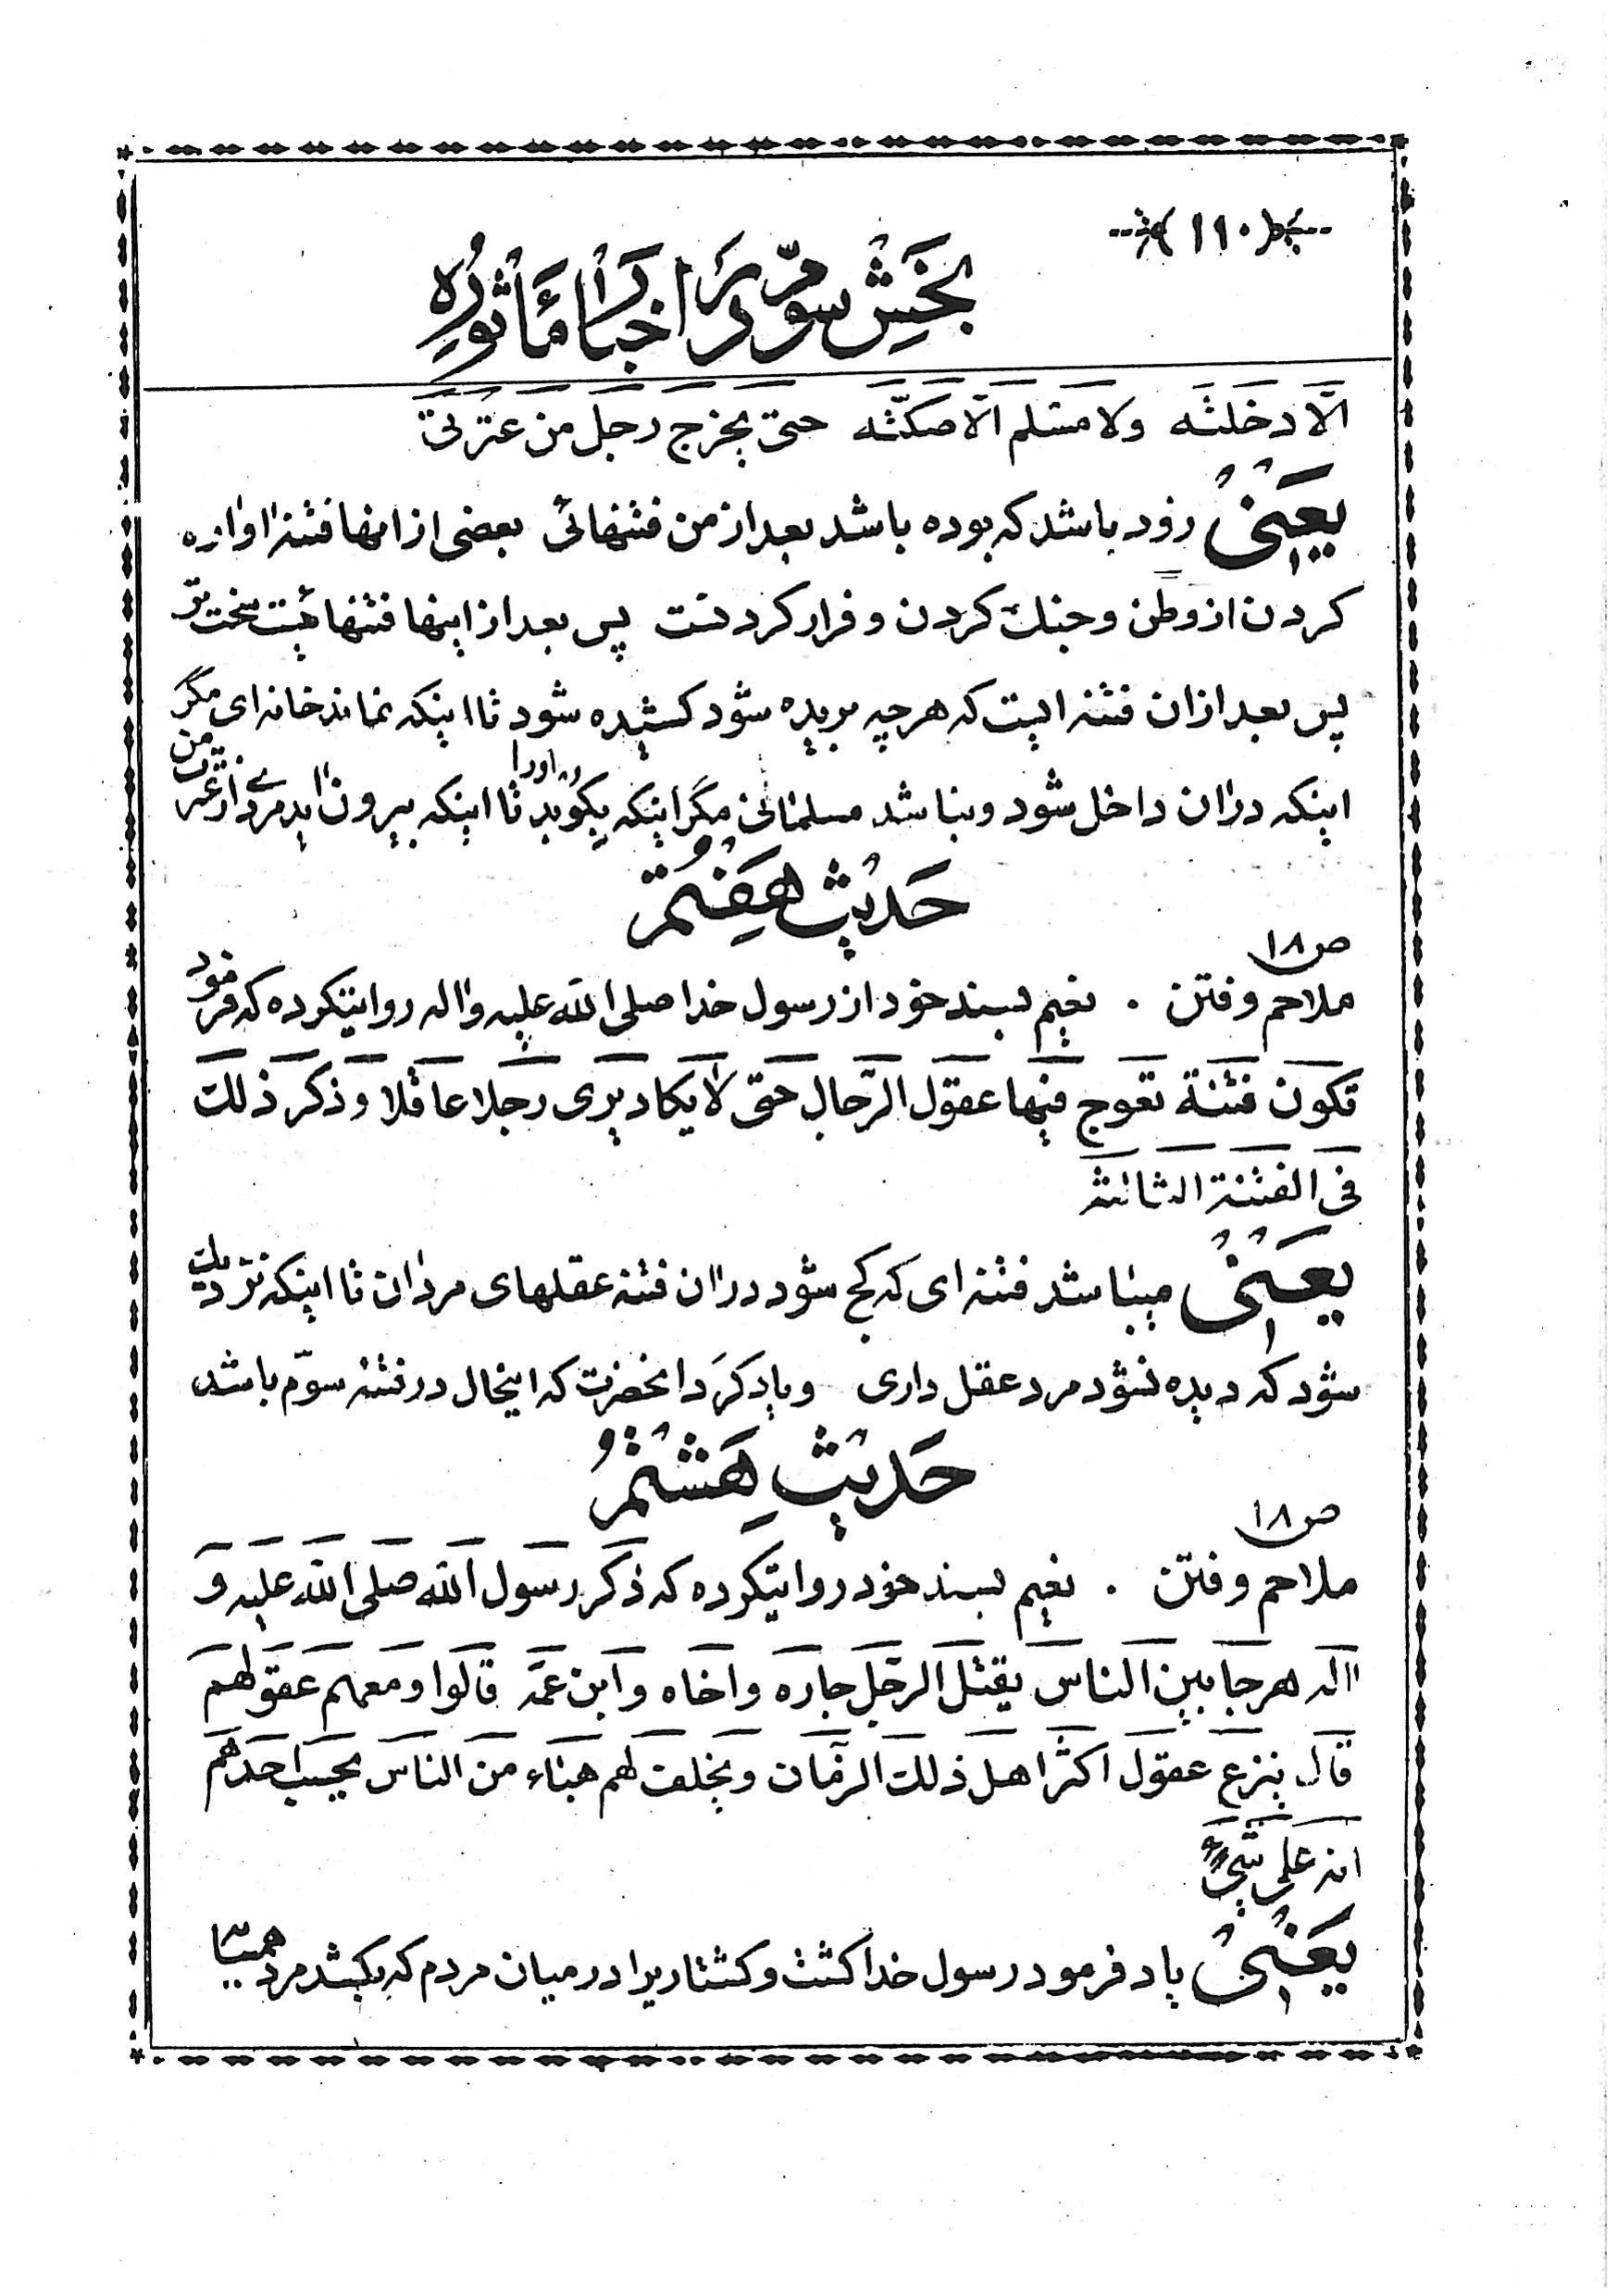 ۱۱۰
بخش سوّم در اخبار مأثوره
الّا دخلته ولا مسلم الّا صکّته حتی یخرج رجل من عترتی
یعنی زود باشد که بوده باشد بعد از من فتنهائی بعضی از انها فتنه اواره
کردن از وطن و جنک کردن و فرار کردنست پس بعد از اینها فتنهائیست سخت تر
پس بعد از ان فتنه ایست که هر چه بریده شود کشیده شود تا اینکه نماند خانه ای مگر
اینکه در ان داخل شود و نباشد مسلمانی مگر اینکه بکوبد او را تا اینکه بیرون اید مردی از عترت من
حدیث هفتم
ص۱۸
ملاحم و فتن . نعیم بسند خود از رسول خدا صلی الله علیه و اله روایتکرده که فرمود
تکون فتنة تعوج فیها عقول الرّجال حتی لا یکاد یری رجلا عاقلا و ذکر ذلک
فی الفتنة الثالثة
یعنی میباشد فتنه ای که کج شود در ان فتنه عقلهای مردان تا اینکه نزدیک
شود که دیده نشود مرد عقل داری و یاد کرد انحضرت که اینحال در فتنه سوّم باشد
حدیث هشتم
ص۱۸
ملاحم و فتن . نعیم بسند خود روایتکرده که ذکر رسول الله صلی الله علیه و
اله هرجا بین الناس یقتل الرّجل جاره و اخاه و ابن عمّه قالوا و معهم عقولهم
قال ینزع عقول اکثر اهل ذلک الزمان و یخلف لهم هباء من الناس یحسب احدهم
انه علی شیء
یعنی یاد فرمود رسول خدا کشت و کشتاریرا در میان مردم که بکشد مرد همسا